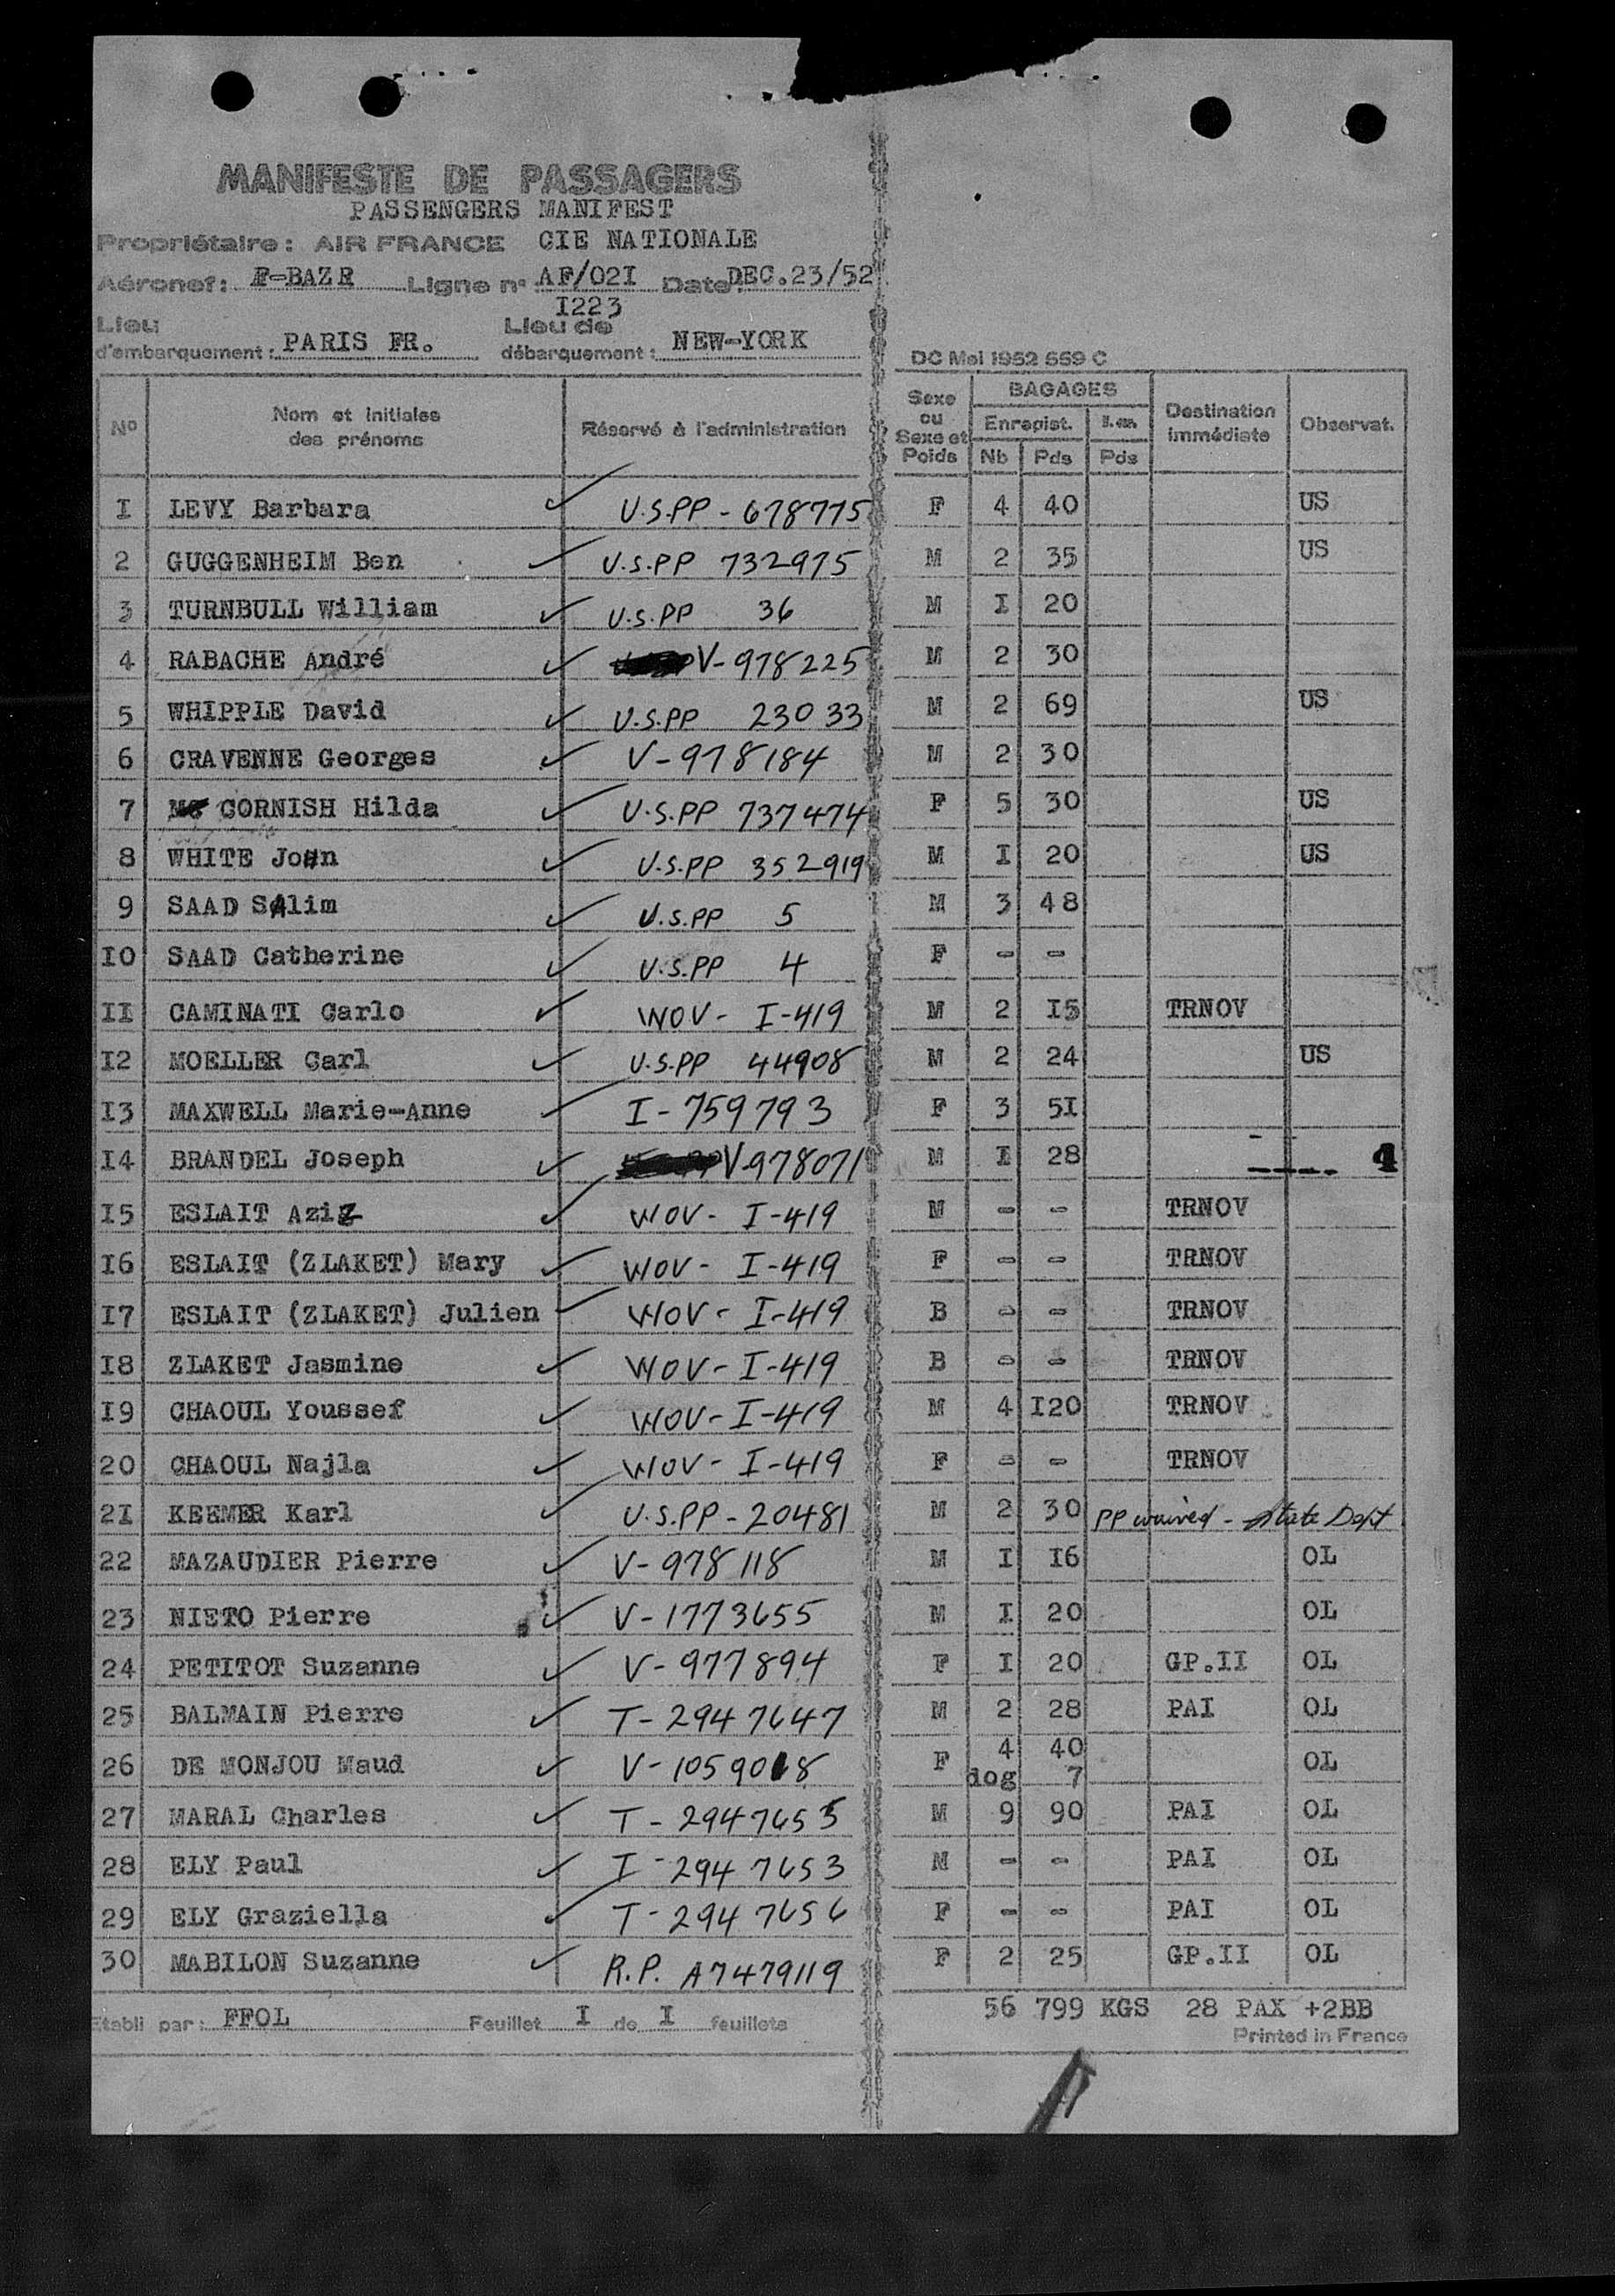 MANIFESTE DE PASSAGERS
PASSENGERS MANIFEST
Propriétaire : AIR FRANCE CIE NATIONALE
Aéronef : F-BAZR Ligne n° AF/02I Date : DEC.23/52
I223
Lieu d'embarquement : PARIS FR. Lieu de débarquement : NEW-YORK
DC Mol 1952 559 C
N° Nom et initiales des prénoms Réservé à l'administration Sexe ou Sexe et Poids BAGAGES Enregist. Nb Pds Pds Destination immédiate Observat.
I LEVY Barbara U.S.PP - 678775 F 4 40 US
2 GUGGENHEIM Ben U.S.PP 732975 M 2 35 US
3 TURNBULL William U.S.PP 36 M I 20
4 RABACHE André V-978225 M 2 30
5 WHIPPLE David U.S.PP 23033 M 2 69 US
6 CRAVENNE Georges V-978184 M 2 30
7 CORNISH Hilda U.S.PP 737474 F 5 30 US
8 WHITE John U.S.PP 352919 M I 20 US
9 SAAD SAlim U.S.PP 5 M 3 48
IO SAAD Catherine U.S.PP 4 F - -
II CAMINATI Carlo WOV - I-419 M 2 I5 TRNOV
I2 MOELLER Carl U.S.PP 44908 M 2 24 US
I3 MAXWELL Marie-Anne I-759793 F 3 5I
I4 BRANDEL Joseph V-978071 M I 28 4
I5 ESLAIT Aziz WOV - I-419 M - - TRNOV
I6 ESLAIT (ZLAKET) Mary WOV - I-419 F - - TRNOV
I7 ESLAIT (ZLAKET) Julien WOV - I-419 B - - TRNOV
I8 ZLAKET Jasmine WOV - I-419 B - - TRNOV
I9 CHAOUL Youssef WOV - I-419 M 4 I20 TRNOV
20 CHAOUL Najla WOV - I-419 F - - TRNOV
2I KEEMER Karl U.S.PP - 20481 M 2 30 PP waived - State Dept
22 MAZAUDIER Pierre V-978118 M I I6 OL
23 NIETO Pierre V-1773655 M I 20 OL
24 PETITOT Suzanne V-977894 F I 20 GP.II OL
25 BALMAIN Pierre T-2947647 M 2 28 PAI OL
26 DE MONJOU Maud V-1059018 F 4 40 OL
dog 7
27 MARAL Charles T-2947655 M 9 90 PAI OL
28 ELY Paul I-2947653 M - - PAI OL
29 ELY Graziella T-2947656 F - - PAI OL
30 MABILON Suzanne R.P. A7479119 F 2 25 GP.II OL
56 799 KGS 28 PAX +2BB
Etabli par : FFOL Feuillet I de I feuillets
Printed in France